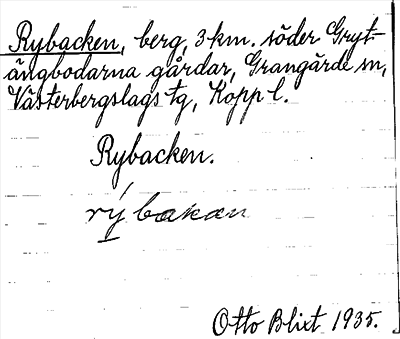 Rybacken, berg, 3 km. söder Gryt-
ängbodarna gårdar, Grangärde sn,
Västerbergslags tg, Kopp l.
Rybacken.
rýbakan
Otto Blixt 1935.